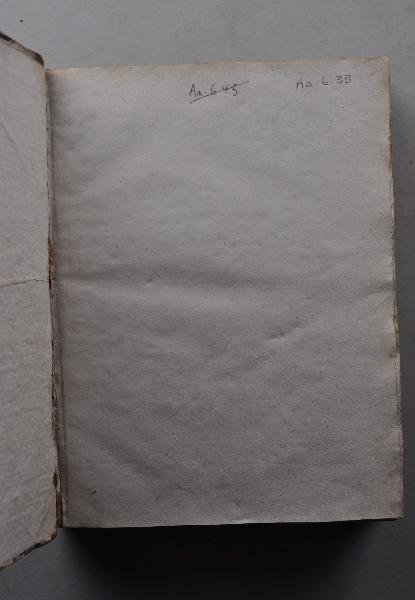 Aa.6.45 Aa.6.33